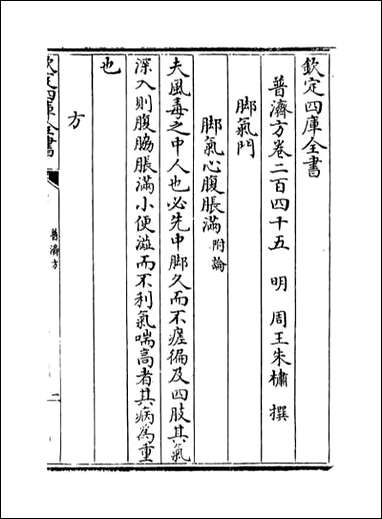 欽定四庫全書
普濟方卷二百四十五 明 周王朱橚 撰
脚氣門
脚氣心腹脹滿附論
夫風毒之中人也必先中脚久而不瘥徧及四肢其氣
深入則腹脇脹滿小便澁而不利氣喘高者其病為重
也
方
欽定四庫全書
普濟方
二